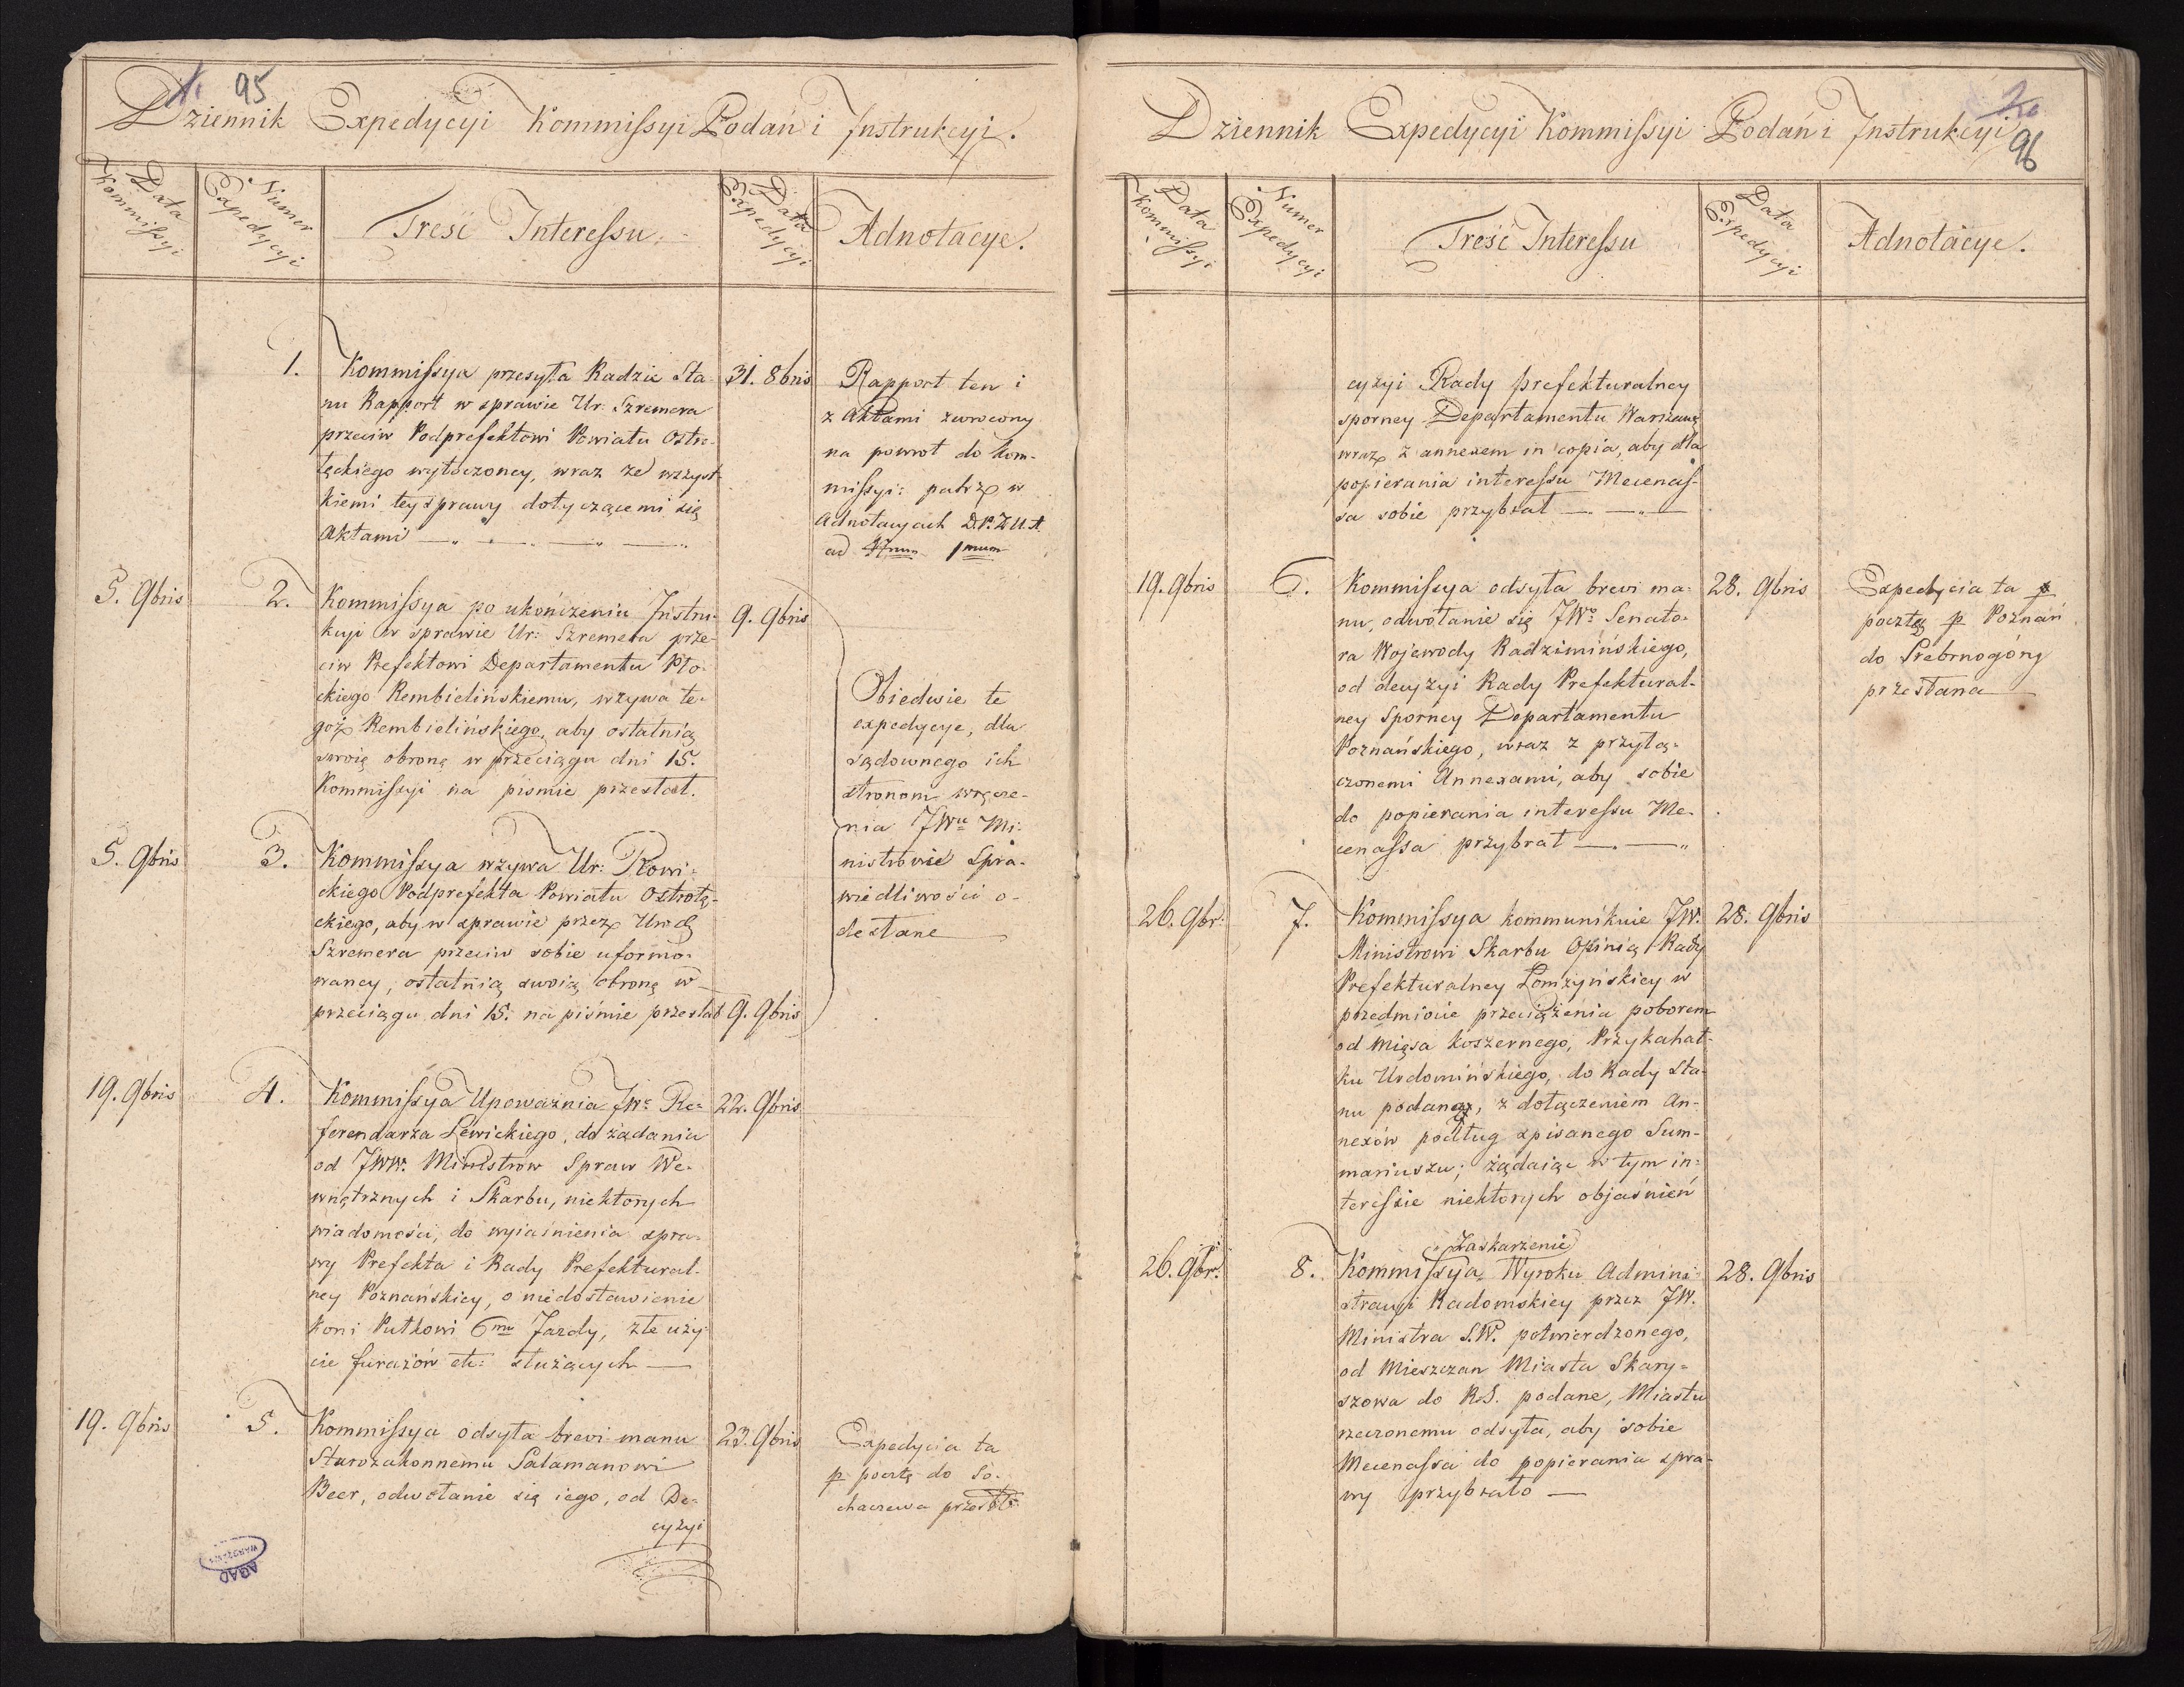 1. 95
Dziennik Expedycyi Kommissyi Podań i Instrukcyi.
Data Kommissyi
Numer Expedycyi
Treść Interessu.
Data Expedycyi
Adnotacye.
1. Kommissya przesyła Radzie Sta- 31. 8bris
nu Rapport w sprawie Ur: Szremera
przeciw Podprefektowi Powiatu Ostro-
łęckiego wytoczoney, wraz ze wszyst-
kiemi tey sprawy dotyczącemi się
Aktami
Rapport ten i
z Aktami zwrocony
na powrot do Kom-
missyi: patrz w
Adnotacyach D.P.Z.U.A.
ad 1mum
5. 9bris 2. Kommissya po ukończeniu Instru- 9. 9bris
kcyi w sprawie Ur: Szremera prze-
ciw Prefektowi Departamentu Pło-
ckiego Rembielińskiemu, wzywa te-
goż Rembielińskiego, aby ostatnią
swoię obronę w przeciągu dni 15.
Kommissyi na pismie przesłał.
Obiedwie te
expedycye, dla
sądownego ich
stronom wręcze-
nia JWu Mi-
nistrowie Spra-
wiedliwości o-
desłane
5. 9bris 3. Kommissya wzywa Ur: Rowi-
ckiego Podprefekta Powiatu Ostrołę-
ckiego, aby w sprawie przez Urodz
Szremera przeciw sobie uformo-
waney, ostatnią swoią obronę w
przeciągu dni 15. na piśmie przesłał 9. 9bris
19. 9bris 4. Kommissya Upoważnia JWo Re- 22. 9bris
ferendarza Lewickiego, do żądania
od JWW. Ministrow Spraw We-
wnętrznych i Skarbu, niektorych
wiadomości, do wyiaśnienia spra-
wy Prefekta i Rady Prefektural-
ney Poznańskiey, o niedostawienie
Koni Pułkowi 6mu Jazdy, złe uży-
cie furażów etc: służących
19. 9bris 5. Kommissya odsyła brevi manu 23. 9bris
Starozakonnemu Salamanowi
Beer, odwołanie się iego, od De-
cyzyi
Expedycia ta
p pocztę do So-
chaczewa przesła:
AGAD
WARSZAWA
2. 96
Dziennik Expedycyi Kommissyi Podań i Instrukcyi
Data Kommissyi
Numer Expedycyi
Treść Interessu
Data Expedycyi
Adnotacye.
cyzyi Rady prefekturalney
sporney Departamentu Warszaws
wraz z annexem in copia, aby dla
popierania interessu Mecenas-
sa sobie przybrał
19. 9bris 6. Kommissya odsyła brevi ma- 28. 9bris
nu, odwołanie się JWo Senato-
ra Wojewody Radzimińskiego,
od decyzyi Rady Prefektural-
ney Sporney Departamentu
Poznańskiego, wraz z przyłą-
czonemi Annexami, aby sobie
do popierania interessu Me-
cenassa przybrał
Expedycia ta
pocztą p Poznań
do Srebrnogóry
przesłana
26. 9br: 7. Kommissya kommunikuie JW. 28. 9bris
Ministrowi Skarbu Opinią Rady
Prefekturalney Łomżyńskiey w
przedmiocie przeciążenia poborem
od mięsa koszernego, Przykahał-
ku Urdomińskiego, do Rady Sta-
nu podaną, z dołączeniem An-
nexów podług spisanego Sum-
mariuszu; żądaiąc w tym in-
teressie niektorych objaśnień
26. 9br: 8. Kommissya Zaskarzenie Wyroku Admini- 28. 9bris
stracyi Radomskiey przez JW.
Ministra S.W. potwierdzonego,
od Mieszczan Miasta Skary-
szowa do R.S. podane, Miastu
rzeczonemu odsyła, aby sobie
Mecenassa do popierania spra-
wy przybrało